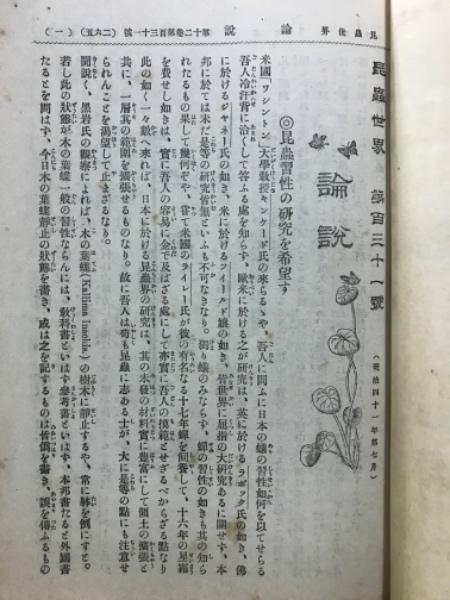 昆蟲世界　第百三十一號
（明治四十一年第七月）
論說
◎昆蟲習性の研究を希望す
米國『ワシントン』大學教授キンケード氏の來らるゝや、吾人に問ふに日本の蟻の習性如何を以てせらる
吾人冷汗背に洽くして答ふる處を知らず、歐米に於ける之が研究は、英に於けるラボック氏の如き、佛
に於けるジャネー氏の如き、米に於けるフィールド孃の如き、皆世界に屈指の大研究あるに關せず、本
邦に於ては未だ是等の研究皆無といふも不可なきなり。獨り蟻のみならず、蟬の習性の如きも其の知ら
れたるもの果して幾何ぞや、甞て米國のライレー氏が彼の有名なる十七年蟬を飼養して、十六年の星霜
を費せし如きは、實に吾人の容易に企て及ばざる處にして亦實に吾人の摸範とせざるべからざる點なり
此の如く一々數へ來れば、日本に於ける昆蟲界の研究は、其の未發の材料實に豊富にして領土の擴張と
共に、一層其の範圍を擴張せるものなり。故に吾人は苟も昆蟲に志ある士が、大に是等の點にも注意せ
られんことを渴望して止まざるなり。
聞說く、黑岩氏の觀察によれば、木の葉蝶(Kallima inachis)の樹木に靜止するや、常に躰を倒にすと。
若し此の狀態が木の葉蝶一般の習性ならんには、敎科書といはず參考書といはず、本邦書たると外國書
たるとを問はず、今日木の葉蝶靜止の狀態を畵き、或は之を記するものは皆僞を畵き、誤を傳ふるもの
昆蟲世界
論　說
第十二卷第百三十一號
（二九五）
（一）